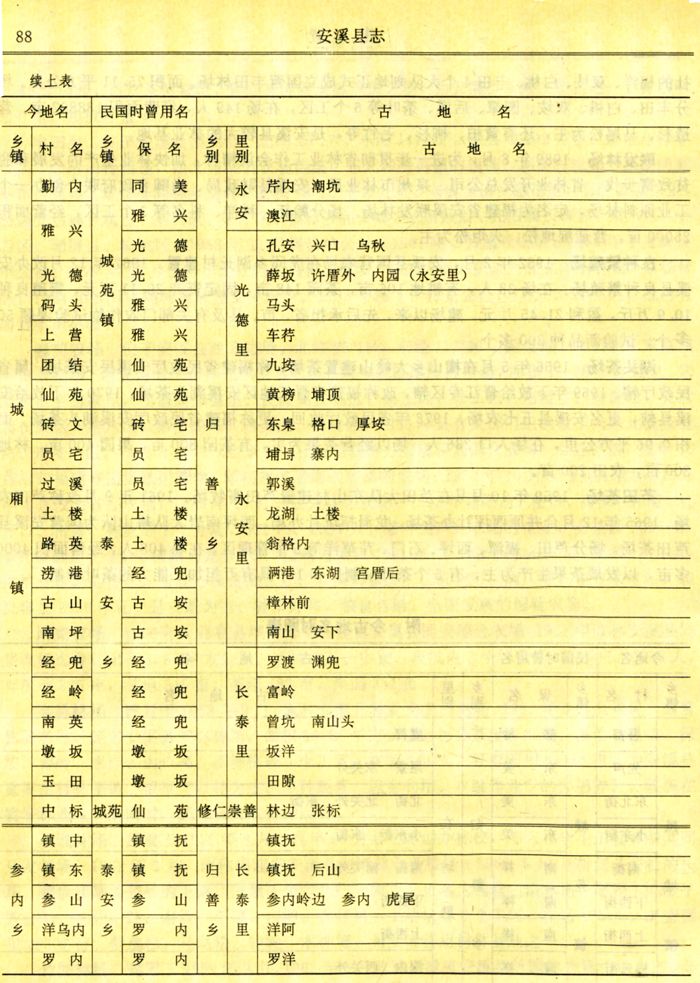 88 安溪县志
续上表
今地名 民国时曾用名 古地名
乡镇 村名 乡镇 保名 乡别 里别 古地名
城厢镇 勤内 城苑镇 同美 归善乡 永安 芹内 潮坑
雅兴 雅兴 澳江
光德 光德里 孔安 兴口 乌秋
光德 光德 薛坂 许厝外 内园（永安里）
码头 雅兴 马头
上营 雅兴 车荇
团结 仙苑 九垵
仙苑 仙苑 黄榜 埔顶
砖文 泰安乡 砖宅 永安里 东臬 格口 厚垵
员宅 员宅 埔埒 寨内
过溪 员宅 郭溪
土楼 土楼 龙湖 土楼
路英 土楼 翁格内
涝港 经兜 洒港 东湖 宫厝后
古山 古垵 樟林前
南坪 古垵 南山 安下
经兜 经兜 长泰里 罗渡 渊兜
经岭 经兜 富岭
南英 经兜 曾坑 南山头
墩坂 墩坂 坂洋
玉田 墩坂 田隙
中标 城苑 仙苑 修仁 崇善 林边 张标
参内乡 镇中 泰安乡 镇抚 归善乡 长泰里 镇抚
镇东 镇抚 镇抚 后山
参山 参山 参内岭边 参内 虎尾
洋乌内 罗内 洋阿
罗内 罗内 罗洋